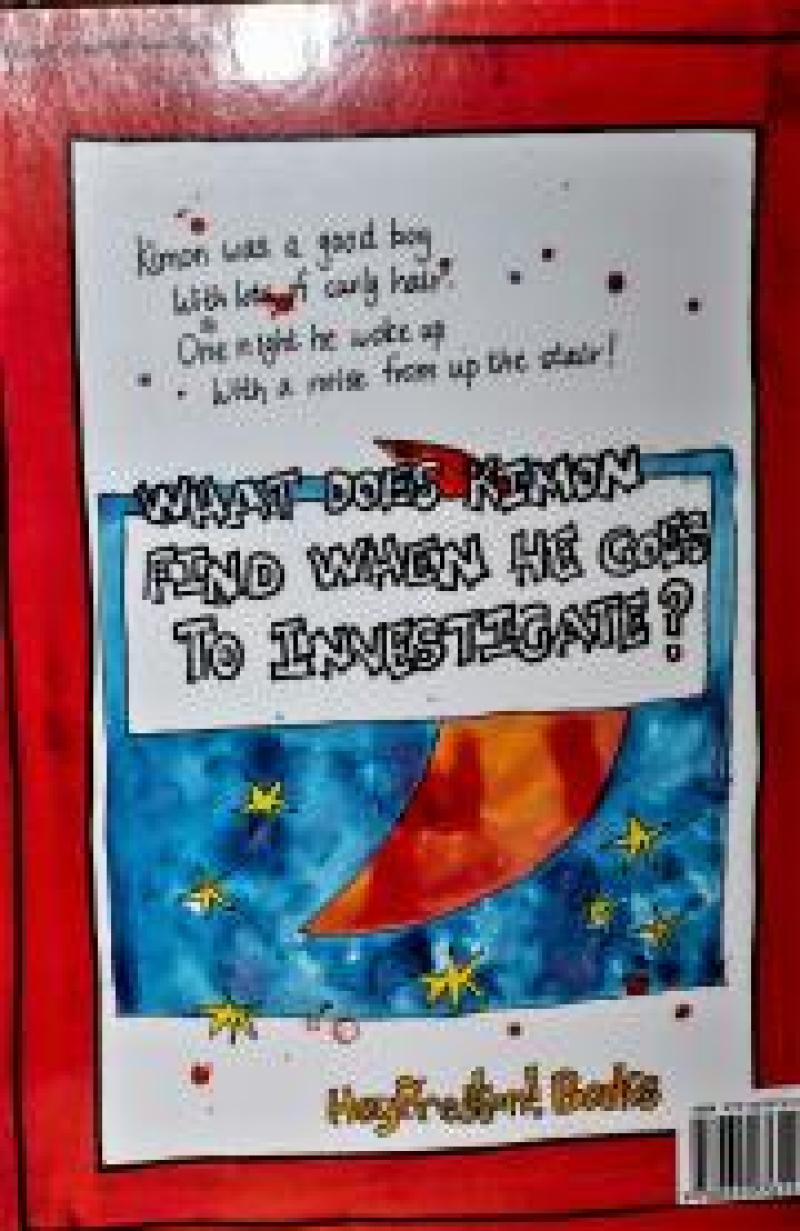 Kimon was a good boy
With lots of curly hair.
One night he woke up
With a noise from up the stair!
WHAT DOES KIMON
FIND WHEN HE GOES
TO INVESTIGATE?
Books